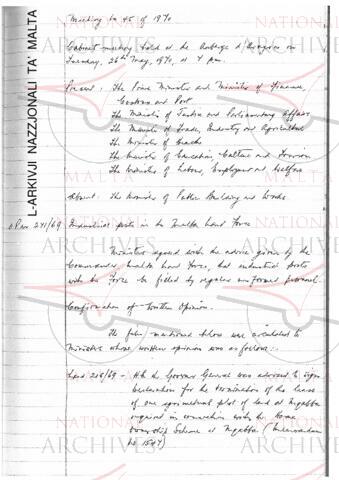 L-ARKIVJI NAZZJONALI TA' MALTA
Meeting No 45 of 1970
Cabinet meeting held at the Auberge d'Aragon on
Tuesday, 26th May, 1970, at 4 pm.
Present: The Prime Minister and Minister of Finance,
Customs and Port
The Minister of Justice and Parliamentary Affairs
The Minister of Trade, Industry and Agriculture
The Minister of Health
The Minister of Education, Culture and Tourism
The Minister of Labour, Employment and Welfare
Absent: The Minister of Public Building and Works
OPM 271/69 Industrial posts in the Malta Land Force
Ministers agreed with the advice given by the
Commander Malta Land Force, that industrial posts
with the Force be filled by regular uniformed personnel.
Confirmation of Written Opinion.
The files mentioned below were circulated to
Ministers whose written opinion was as follows:-
Land 268/69 - H.E. the Governor General was advised to sign
declaration for the termination of the lease
of one agricultural plot of land at Mqabba
required in connection with the Home
Ownership Scheme at Mqabba (Memorandum
No 1547)
NATIONAL ARCHIVES
MALTA